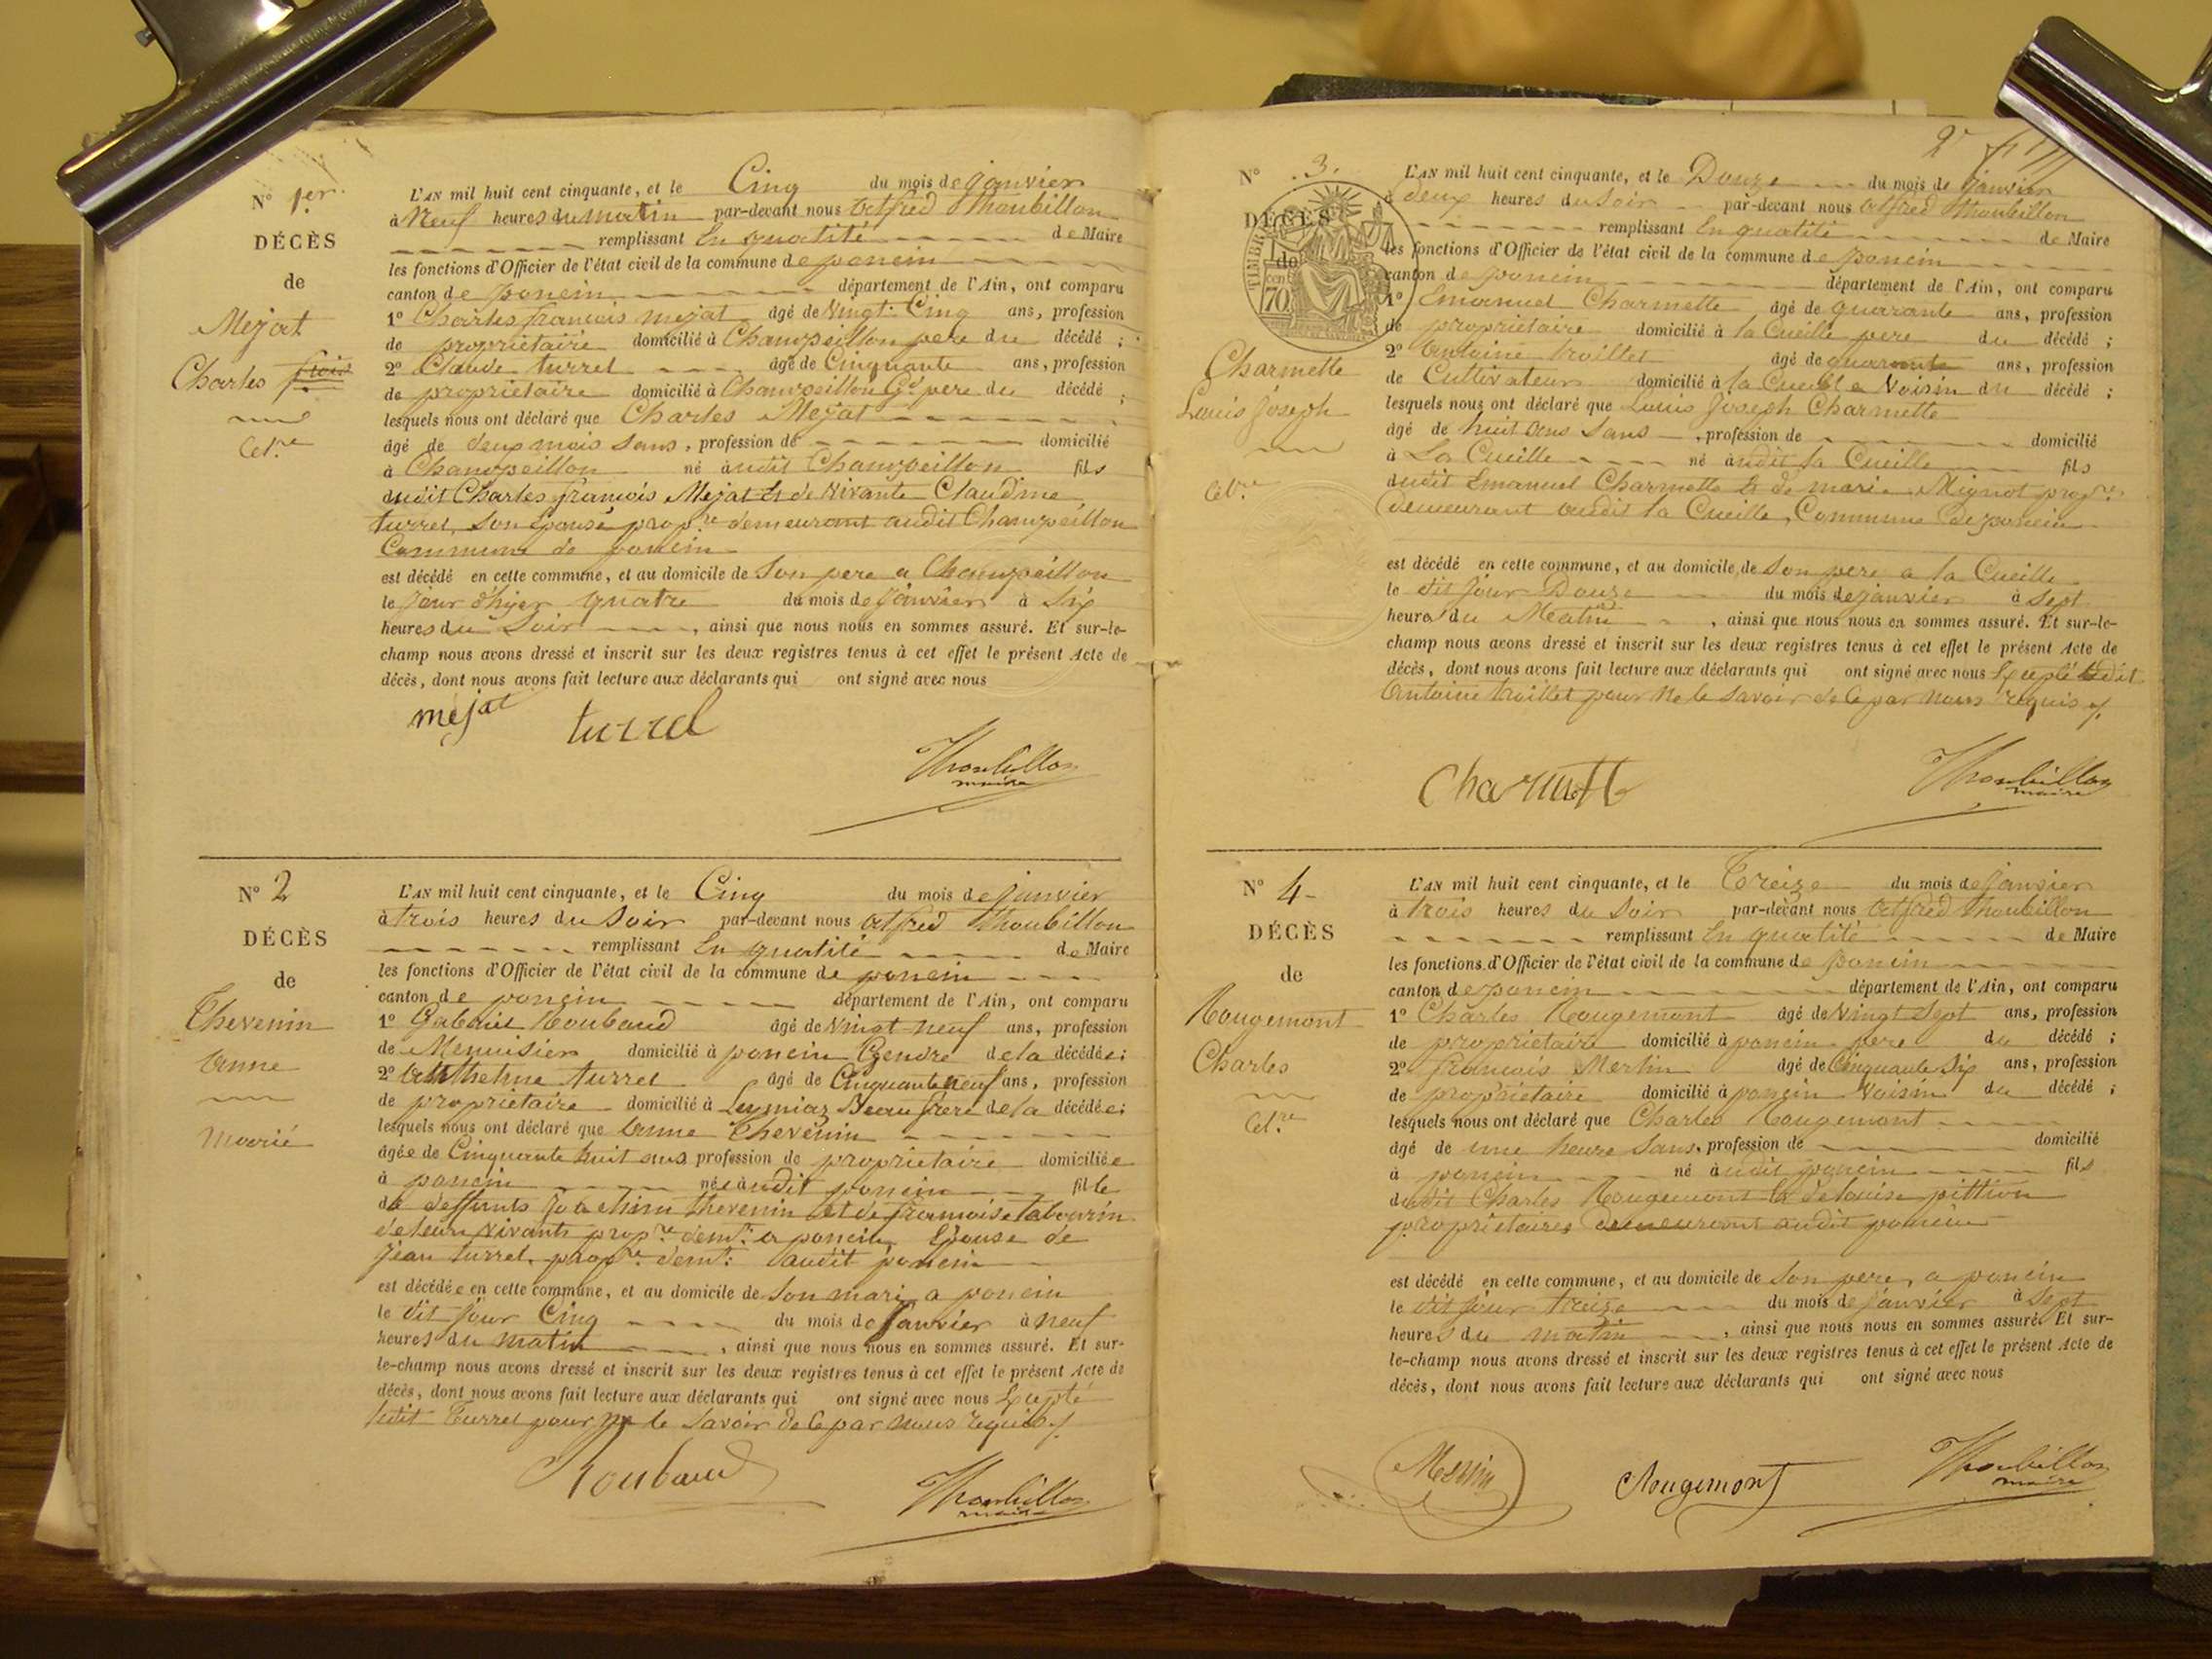 N° 1er
DÉCÈS
de
Mejat
Charles
Cel.re
L'AN mil huit cent cinquante, et le Cinq du mois de janvier
à Neuf heures du matin par-devant nous Alfred Thoubillon
remplissant En qualité de Maire
les fonctions d'Officier de l'état civil de la commune de poncin
canton de poncin département de l'Ain, ont comparu
1° Charles françois mejat âgé de Vingt Cinq ans, profession
de propriétaire domicilié à Champeillon pere du décédé ;
2° Claude turrel âgé de Cinquante ans, profession
de propriétaire domicilié à Champeillon Gd pere du décédé ;
lesquels nous ont déclaré que Charles Mejat
âgé de deux mois sans, profession de domicilié
à Champeillon né audit Champeillon fils
dudit Charles françois Mejat Et de Vivante Claudine
turrel, Son Epouse prop.re demeurant audit Champeillon
Commune de poncin
est décédé en cette commune, et au domicile de Son pere a Champeillon
le jour d'hyer quatre du mois de janvier à Six
heures du Soir, ainsi que nous nous en sommes assuré. Et sur-le-
champ nous avons dressé et inscrit sur les deux registres tenus à cet effet le présent Acte de
décès, dont nous avons fait lecture aux déclarants qui ont signé avec nous
mejat turrel
Thoubillon
maire
N° 2
DÉCÈS
de
Thevenin
Anne
Marié
L'AN mil huit cent cinquante, et le Cinq du mois de janvier
à trois heures du Soir par-devant nous Alfred Thoubillon
remplissant En qualité de Maire
les fonctions d'Officier de l'état civil de la commune de poncin
canton de poncin département de l'Ain, ont comparu
1° Gabriel Roubaud âgé de Vingt neuf ans, profession
de Menuisier domicilié à poncin Gendre de la décédée ;
2° Anthelme turrel âgé de Cinquante neuf ans, profession
de propriétaire domicilié à Leymiaz Beau frere de la décédée ;
lesquels nous ont déclaré que Anne Thevenin
âgée de Cinquante huit ans profession de propriétaire domiciliée
à poncin née audit poncin fille
de deffunts Joachim thevenin et de françoise tabourin
de leurs Vivants prop.re demt. a poncin, Epouse de
jean turrel, prop.re demt. audit poncin
est décédée en cette commune, et au domicile de Son mari a poncin
le dit jour Cinq du mois de janvier à neuf
heures du matin, ainsi que nous nous en sommes assuré. Et sur-
le-champ nous avons dressé et inscrit sur les deux registres tenus à cet effet le présent Acte de
décès, dont nous avons fait lecture aux déclarants qui ont signé avec nous Excepté
ledit Turrel pour ne le Savoir de Ce par nous requis
Roubaud
Thoubillon
maire
2e
N° 3.
DÉCÈS
de
TIMBRE
70
Charmette
Louis Joseph
Cel.re
L'AN mil huit cent cinquante, et le Douze du mois de janvier
à deux heures du Soir par-devant nous Alfred Thoubillon
remplissant En qualité de Maire
les fonctions d'Officier de l'état civil de la commune de poncin
canton de poncin département de l'Ain, ont comparu
1° Emanuel Charmette âgé de quarante ans, profession
de propriétaire domicilié à la Cueille pere du décédé ;
2° Antoine troillet âgé de quarante ans, profession
de Cultivateur domicilié à la Cueille Voisin du décédé ;
lesquels nous ont déclaré que Louis Joseph Charmette
âgé de huit ans Sans, profession de domicilié
à La Cueille né audit la Cueille fils
dudit Emanuel Charmette Et de marie Mignot prop.re
demeurant audit la Cueille, Commune de poncin
est décédé en cette commune, et au domicile de Son pere a la Cueille
le dit jour Douze du mois de janvier à Sept
heures du Matin, ainsi que nous nous en sommes assuré. Et sur-le-
champ nous avons dressé et inscrit sur les deux registres tenus à cet effet le présent Acte de
décès, dont nous avons fait lecture aux déclarants qui ont signé avec nous Excepté ledit
Antoine troillet pour ne le Savoir de Ce par nous requis
Charmette
Thoubillon
maire
N° 4
DÉCÈS
de
Rougemont
Charles
Cel.re
L'AN mil huit cent cinquante, et le Treize du mois de janvier
à trois heures du Soir par-devant nous Alfred Thoubillon
remplissant En qualité de Maire
les fonctions d'Officier de l'état civil de la commune de poncin
canton de poncin département de l'Ain, ont comparu
1° Charles Rougemont âgé de Vingt Sept ans, profession
de propriétaire domicilié à poncin pere du décédé ;
2° françois Merlin âgé de Cinquante Six ans, profession
de propriétaire domicilié à poncin Voisin du décédé ;
lesquels nous ont déclaré que Charles Rougemont
âgé de une heure Sans, profession de domicilié
à poncin né audit poncin fils
dudit Charles Rougemont Et de Louise pittion
propriétaires demeurant audit poncin
est décédé en cette commune, et au domicile de Son pere, a poncin
le dit jour treize du mois de janvier à Sept
heures du matin, ainsi que nous nous en sommes assuré. Et sur-
le-champ nous avons dressé et inscrit sur les deux registres tenus à cet effet le présent Acte de
décès, dont nous avons fait lecture aux déclarants qui ont signé avec nous
Rougemont
Thoubillon
maire